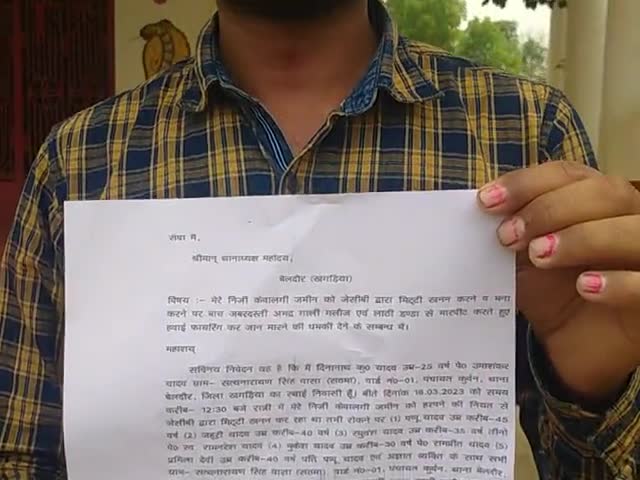 सेवा में,
श्रीमान् थानाध्यक्ष महोदय,
बेलदौर (खगड़िया)
विषय :- मेरे निजी केवालगी जमीन को जेसीबी द्वारा मिट्टी खनन करने व मना
करने पर पांच जबरदस्ती अभद्र गाली गलौज एवं लाठी डण्डा से मारपीट करते हुए
हवाई फायरिंग कर जान मारने की धमकी देने के सम्बन्ध में।
महाशय्
सविनय निवेदन यह है कि मैं दिनानाथ कु0 यादव उम्र-25 वर्ष पे0 उमाशंकर
यादव ग्राम- सत्यनारायण सिंह वासा (सठमा), वार्ड नं0-01, पंचायत कुर्वन, थाना
बेलदौर, जिला खगड़िया का स्थाई निवासी हूँ। बीते दिनांक 16.03.2023 को समय
करीब- 12:30 बजे रात्री में मेरे निजी केवालगी जमीन को हरपने की नियत से
जेसीबी द्वारा मिट्टी खनन कर रहा था तभी रोकने पर (1) पप्पू यादव उम्र करीब-45
वर्ष (2) जहूरी यादव उम्र करीब-40 वर्ष (3) यादव उम्र करीब-35 वर्ष (तीनों)
पे0 स्व0 रामनरेश यादव (4) मुकेश यादव उम्र करीब-30 वर्ष पे0 रामप्रीत यादव (5)
प्रमिला देवी उम्र करीब-40 वर्ष पति पप्पू यादव एवं अज्ञात व्यक्ति के साथ सभी
ग्राम- सत्यनारायण सिंह वासा (सठमा), वार्ड नं0-01, पंचायत कुर्वन, थाना बेलदौर,